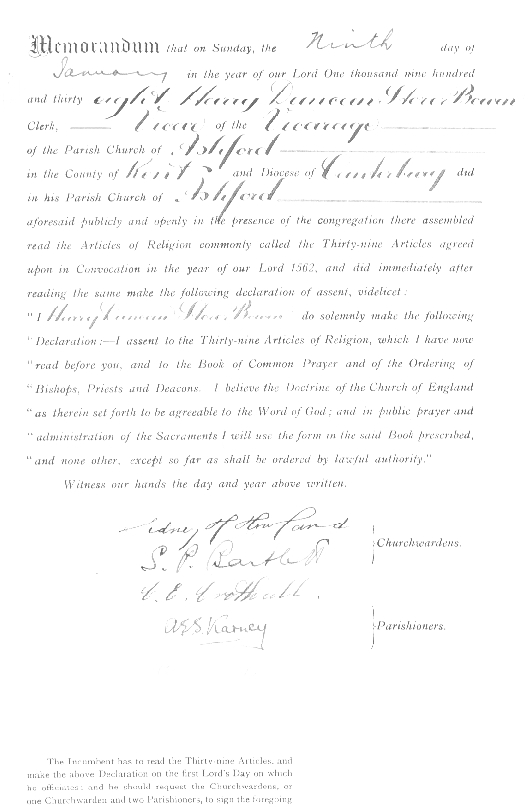 Memorandum that on Sunday, the Ninth day of
January in the year of our Lord One thousand nine hundred
and thirty eight Harry Duncan Store Bowen
Clerk, Vicar of the Vicarage
of the Parish Church of Ashford
in the County of Kent and Diocese of Canterbury did
in his Parish Church of Ashford
aforesaid publicly and openly in the presence of the congregation there assembled
read the Articles of Religion commonly called the Thirty-nine Articles agreed
upon in Convocation in the year of our Lord 1562, and did immediately after
reading the same make the following declaration of assent, videlicet:
"I Harry Duncan Store Bowen do solemnly make the following
"Declaration:—I assent to the Thirty-nine Articles of Religion, which I have now
"read before you, and to the Book of Common Prayer and of the Ordering of
"Bishops, Priests and Deacons. I believe the Doctrine of the Church of England
"as therein set forth to be agreeable to the Word of God; and in public prayer and
"administration of the Sacraments I will use the form in the said Book prescribed,
"and none other, except so far as shall be ordered by lawful authority."
Witness our hands the day and year above written.
Sidney H
S. P. Bartlett
Churchwardens.
C. E.
A G S Karney
Parishioners.
The Incumbent has to read the Thirty-nine Articles, and
make the above Declaration on the first Lord's Day on which
he officiates; and he should request the Churchwardens, or
one Churchwarden and two Parishioners, to sign the foregoing